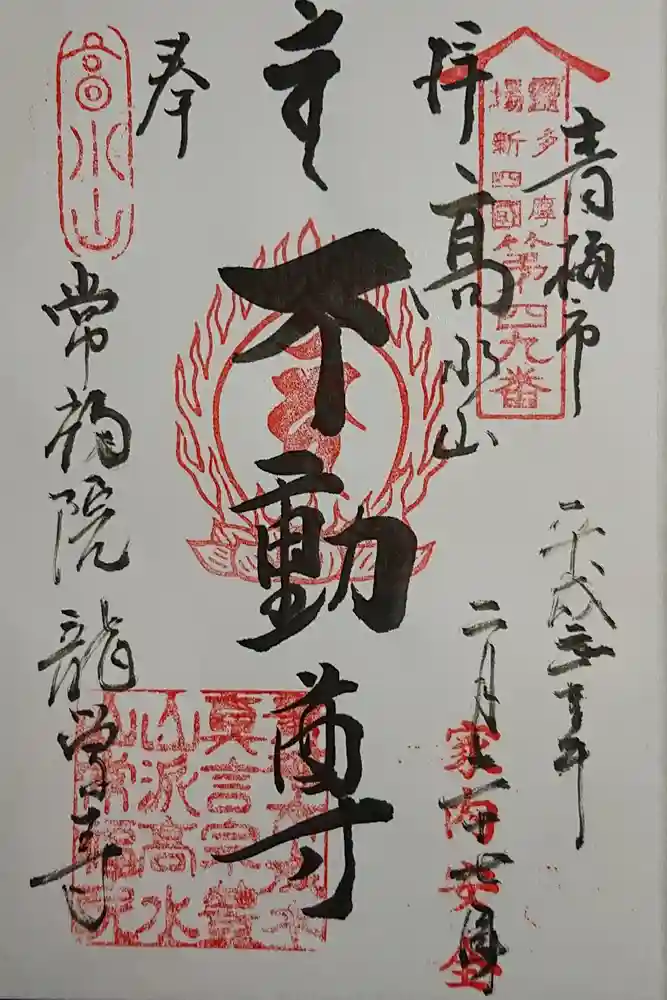 青梅市
靈場
多摩
新四國
第四九番
平成三十年
二月
家内安全
拝
高水山
不動尊
奉
高水山
常福院 龍學寺
眞言宗豊
山派高水
山常福院